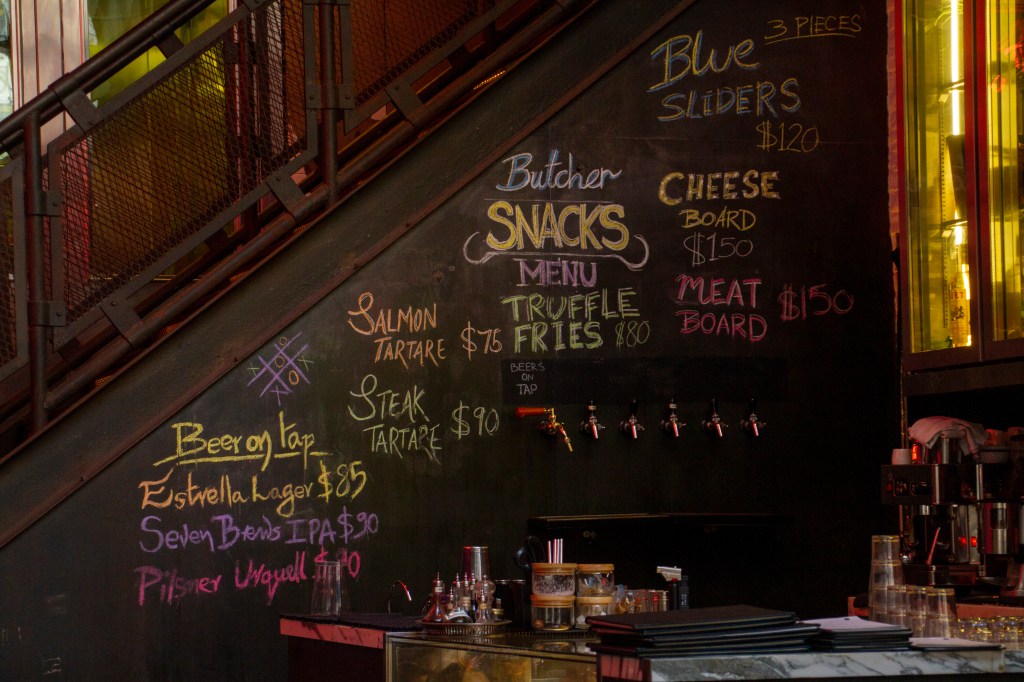 3 PIECES
Blue
SLIDERS
$120
Butcher
SNACKS
MENU
TRUFFLE
FRIES $80
CHEESE
BOARD
$150
MEAT
BOARD $150
SALMON
TARTARE $75
STEAK
TARTARE $90
BEERS
ON
TAP
Beer on tap
Estrella Lager $85
Seven Brews IPA $90
Pilsner Urquell $90